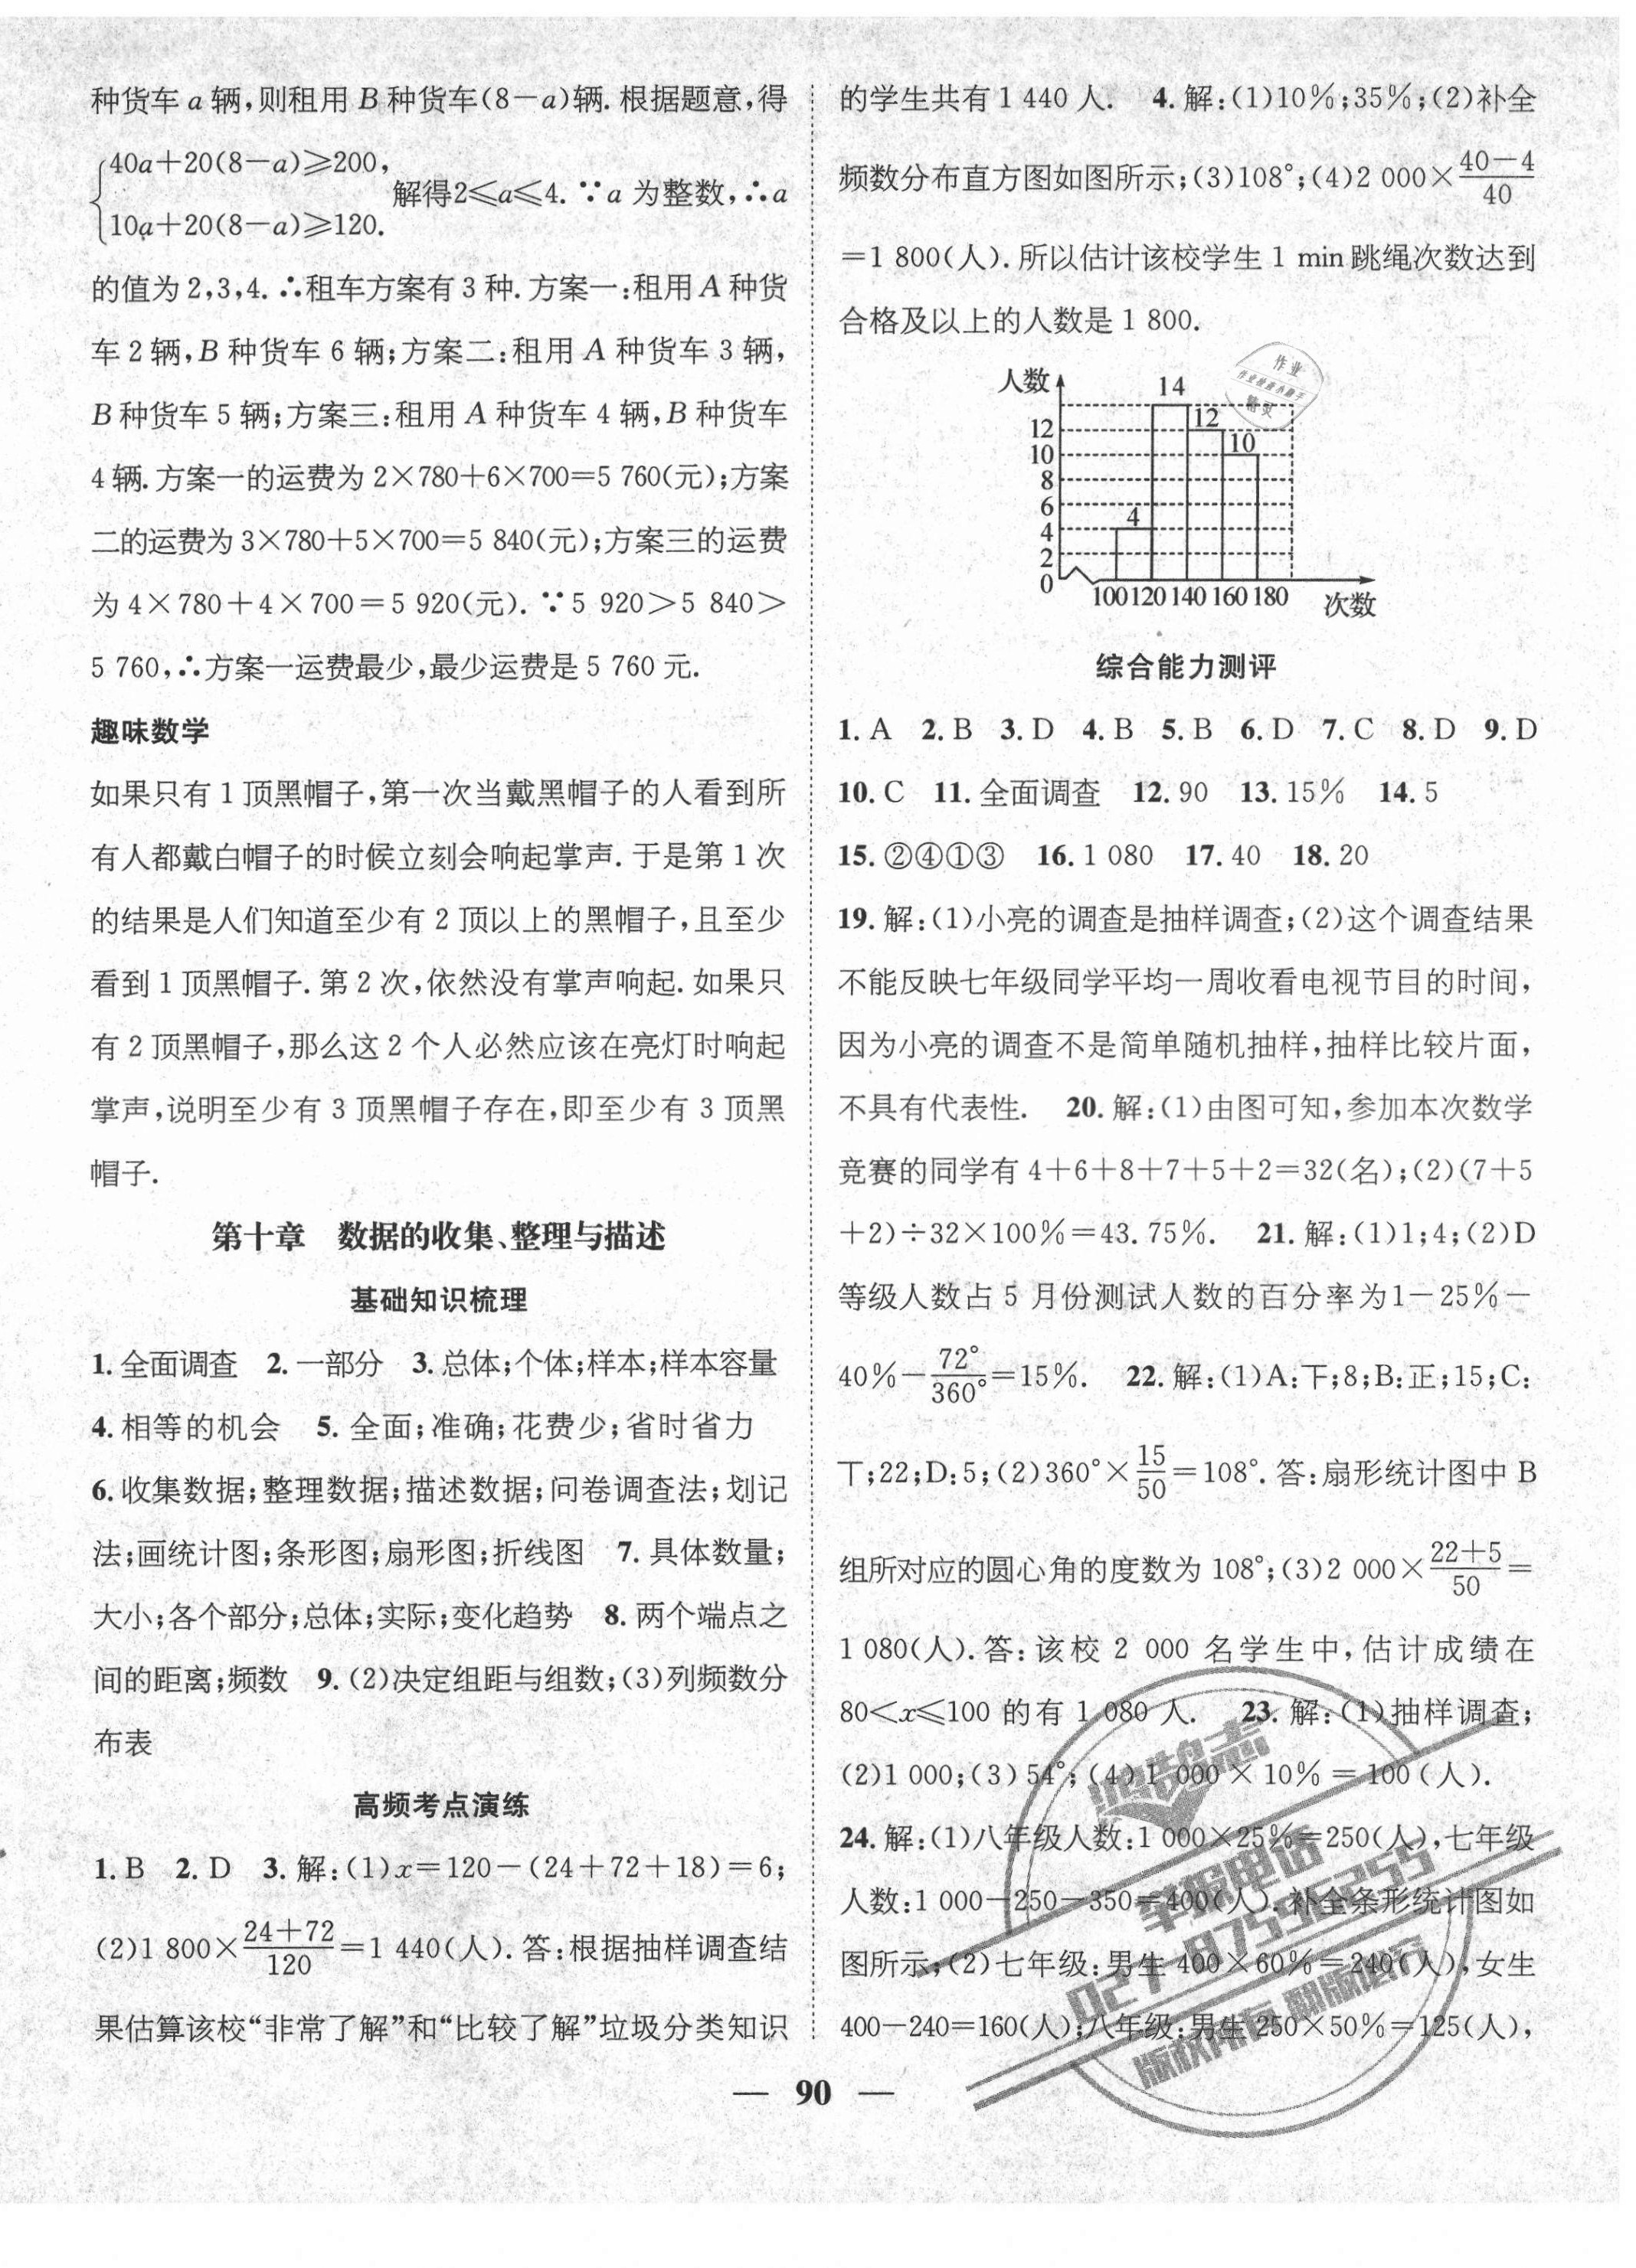 种货车 a 辆,则租用 B 种货车(8－a)辆. 根据题意,得
40a＋20(8－a)⩾200,
10a＋20(8－a)⩾120.
解得2⩽a⩽4. ∵a 为整数,∴a
的值为 2,3,4. ∴租车方案有 3 种. 方案一:租用 A 种货
车 2 辆,B 种货车 6 辆;方案二:租用 A 种货车 3 辆,
B 种货车 5 辆;方案三:租用 A 种货车 4 辆,B 种货车
4 辆. 方案一的运费为 2×780＋6×700＝5 760(元);方案
二的运费为 3×780＋5×700＝5 840(元);方案三的运费
为 4×780＋4×700＝5 920(元). ∵5 920＞5 840＞
5 760,∴方案一运费最少,最少运费是 5 760 元.
趣味数学
如果只有 1 顶黑帽子,第一次当戴黑帽子的人看到所
有人都戴白帽子的时候立刻会响起掌声. 于是第 1 次
的结果是人们知道至少有 2 顶以上的黑帽子,且至少
看到 1 顶黑帽子. 第 2 次,依然没有掌声响起. 如果只
有 2 顶黑帽子,那么这 2 个人必然应该在亮灯时响起
掌声,说明至少有 3 顶黑帽子存在,即至少有 3 顶黑
帽子.
第十章 数据的收集、整理与描述
基础知识梳理
1. 全面调查 2. 一部分 3. 总体;个体;样本;样本容量
4. 相等的机会 5. 全面;准确;花费少;省时省力
6. 收集数据;整理数据;描述数据;问卷调查法;划记
法;画统计图;条形图;扇形图;折线图 7. 具体数量;
大小;各个部分;总体;实际;变化趋势 8. 两个端点之
间的距离;频数 9. (2)决定组距与组数;(3)列频数分
布表
高频考点演练
1. B 2. D 3. 解:(1)x＝120－(24＋72＋18)＝6;
(2)1 800×(24＋72)/120＝1 440(人). 答:根据抽样调查结
果估算该校“非常了解”和“比较了解”垃圾分类知识
的学生共有 1 440 人. 4. 解:(1)10%;35%;(2)补全
频数分布直方图如图所示;(3)108°;(4)2 000×(40－4)/40
＝1 800(人). 所以估计该校学生 1 min 跳绳次数达到
合格及以上的人数是 1 800.
人数
14
12
10
4
12
10
8
6
4
2
0
100 120 140 160 180 次数
作业
精灵
综合能力测评
1. A 2. B 3. D 4. B 5. B 6. D 7. C 8. D 9. D
10. C 11. 全面调查 12. 90 13. 15% 14. 5
15. ②④①③ 16. 1 080 17. 40 18. 20
19. 解:(1)小亮的调查是抽样调查;(2)这个调查结果
不能反映七年级同学平均一周收看电视节目的时间,
因为小亮的调查不是简单随机抽样,抽样比较片面,
不具有代表性. 20. 解:(1)由图可知,参加本次数学
竞赛的同学有 4＋6＋8＋7＋5＋2＝32(名);(2)(7＋5
＋2)÷32×100%＝43.75%. 21. 解:(1)1;4;(2)D
等级人数占 5 月份测试人数的百分率为1－25%－
40%－72°/360°＝15%. 22. 解:(1)A:下;8;B:正;15;C:
丅;22;D:5;(2)360°×15/50＝108°. 答:扇形统计图中 B
组所对应的圆心角的度数为 108°;(3)2 000×(22＋5)/50＝
1 080(人). 答:该校 2 000 名学生中,估计成绩在
80＜x⩽100 的有 1 080 人. 23. 解:(1)抽样调查;
(2)1 000;(3)54°;(4)1 000×10%＝100(人).
24. 解:(1)八年级人数:1 000×25%＝250(人),七年级
人数:1 000－250－350＝400(人). 补全条形统计图如
图所示;(2)七年级:男生 400×60%＝240(人),女生
400－240＝160(人);八年级:男生 250×50%＝125(人),
鸿鹄志
举报电话
027-87535255
版权所有 翻版必究
— 90 —